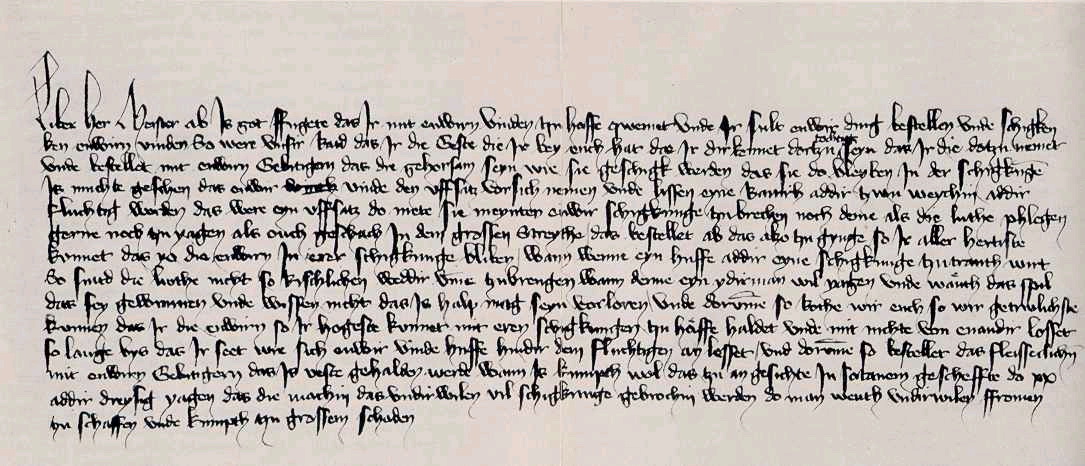 Liber her Meister ab Is got ffugete das Ir mit euwirn vinden czu hoffe qwemet Unde Ir sult euwir ding bestellen unde schigken
ken euwirn vinden So were unsir Raed das Ir die Geste die Ir bey euch hat das Ir dirkennet doczu seyn das Ir die doczu nemet
unde bestellet mit euwirn Gebitigern das die gehorsam seyn wie sie geschigk werden das sie do bleyben In der schigkunge
Is muchte geschen das euwir vinde den uffsatz vorsich nemen unde lissen eyne Banir addir czwu weychin addir
fluchtig werden das were eyn uffsatz do mete sie meynten euwir schigkunge czubrechen noch deme als die luthe phlegen
gerne noch czu yagen als ouch geschach In dem grossen Streythe das bestellet ab das also czu gynge so Ir aller hertiste
konnet das yo die euwirn In erer schigkunge bliben Wann wenne eyn huffe addir eyne schigkunge czutranth wirt
So sind die luthe nicht so rischlichen weddir umme czubrengen wann denne eyn yderman wil yagen unde wenth das spil
das sey gewunnen unde wissen nicht das Is halp mag seyn vorloren unde dorumme so rothe wir euch so wir getruwlichste
konnen das Ir die euwirn so Ir hogeste konnet mit eren schigkungen czu hoffe haldet unde mit nichte von enandir losset
so lange bys das Ir seet wie sich euwir vinde huffe hindir dem fluchtigen an lesset und dorumme so bestellet das fleisseclichin
mit euwirn Gebitigern das Is veste gehalden werde wann Is kumpth wol das czu angesichte In sotanem gescheffte do xx
addir dreysig yagen das die machin das undirwilen vil schigkunge gebrochin werden do man wenth undirwilen ffromen
czu schaffen unde kumpth czu grossem schaden